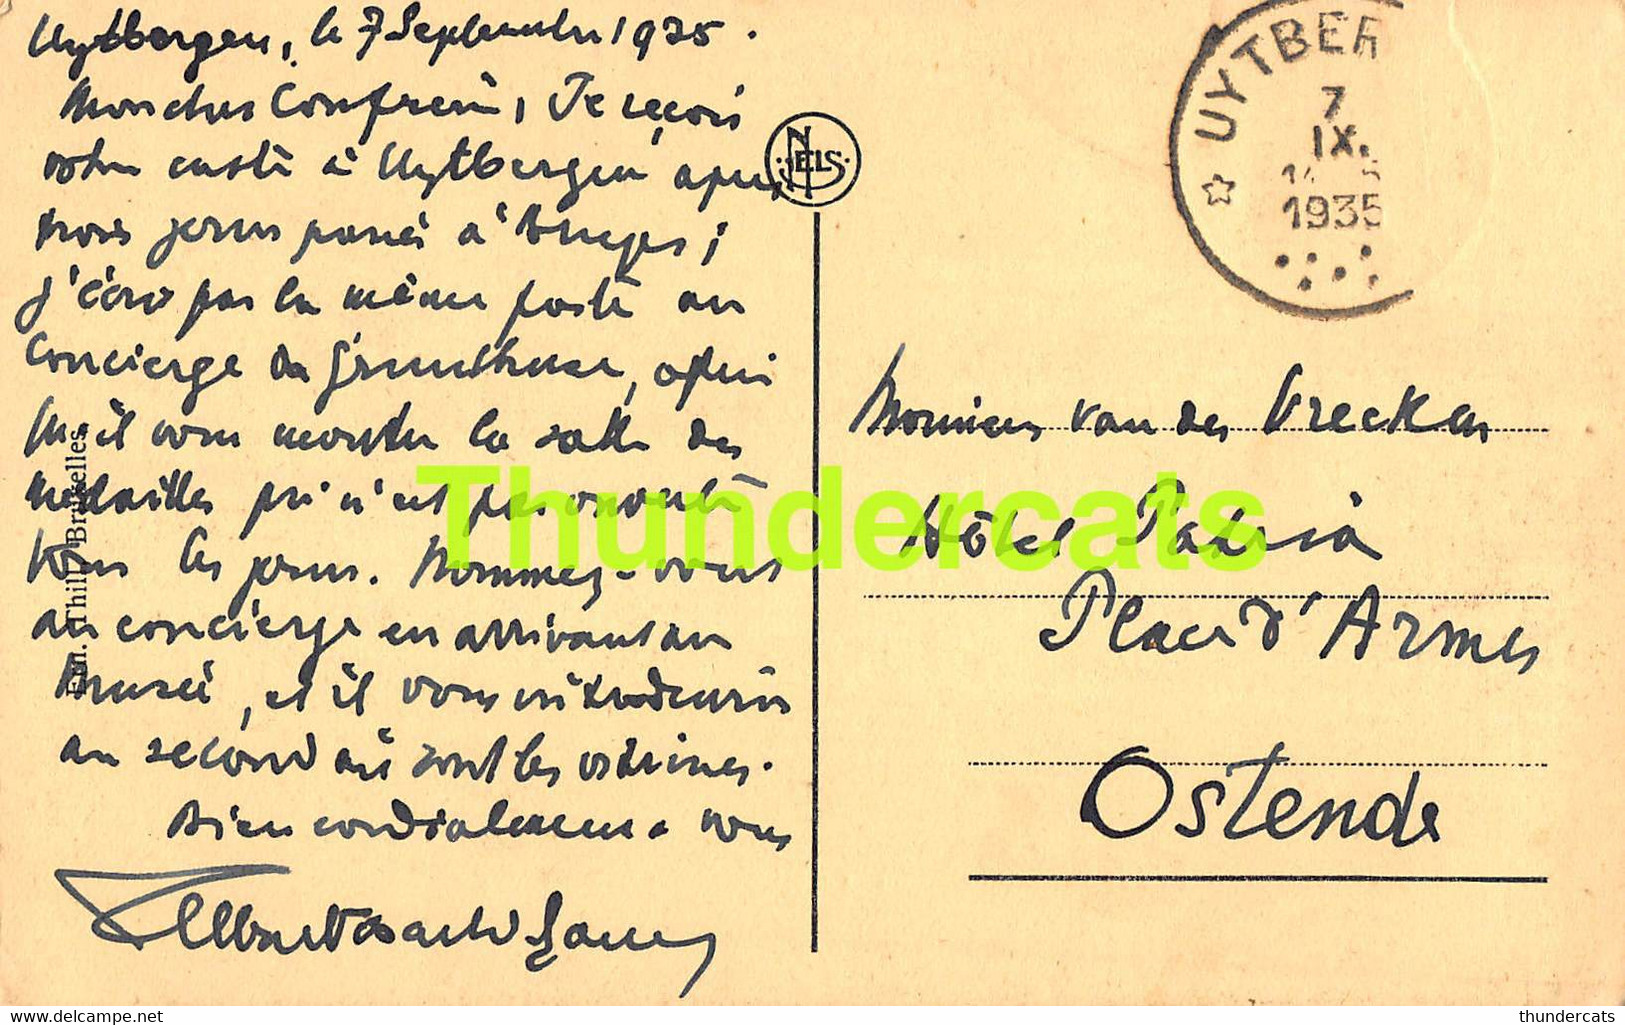 Uytbergen, le 7 Septembre 1935.
Mon cher Confrère, Je reçois
votre carte à Uytbergen après
trois jours passés à Bruges;
j'écris par la même poste au
Concierge du Gruuthuse, afin
qu'il vous montre la salle des
médailles qui n'est pas ouverte
tous les jours. Nommez-vous
au concierge en arrivant au
musée, et il vous introduira
au second où sont les vitrines.
Bien cordialement à vous
Albert Visart de Bocarmé
NELS
Ern. Thill, Bruxelles
UYTBER
7
IX.
1935
Monsieur van der Vrecken
Hôtel Patria
Place d'Armes
Ostende
Thundercats
delcampe.net
thundercats